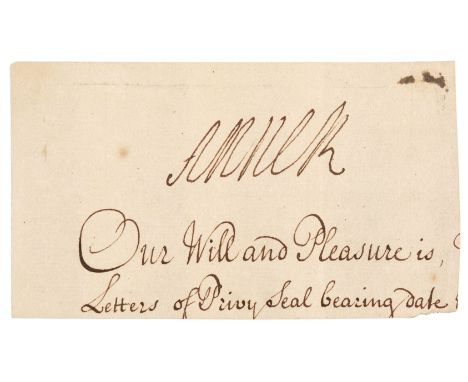 Anne R
Our Will and Pleasure is,
Letters of Privy Seal bearing date